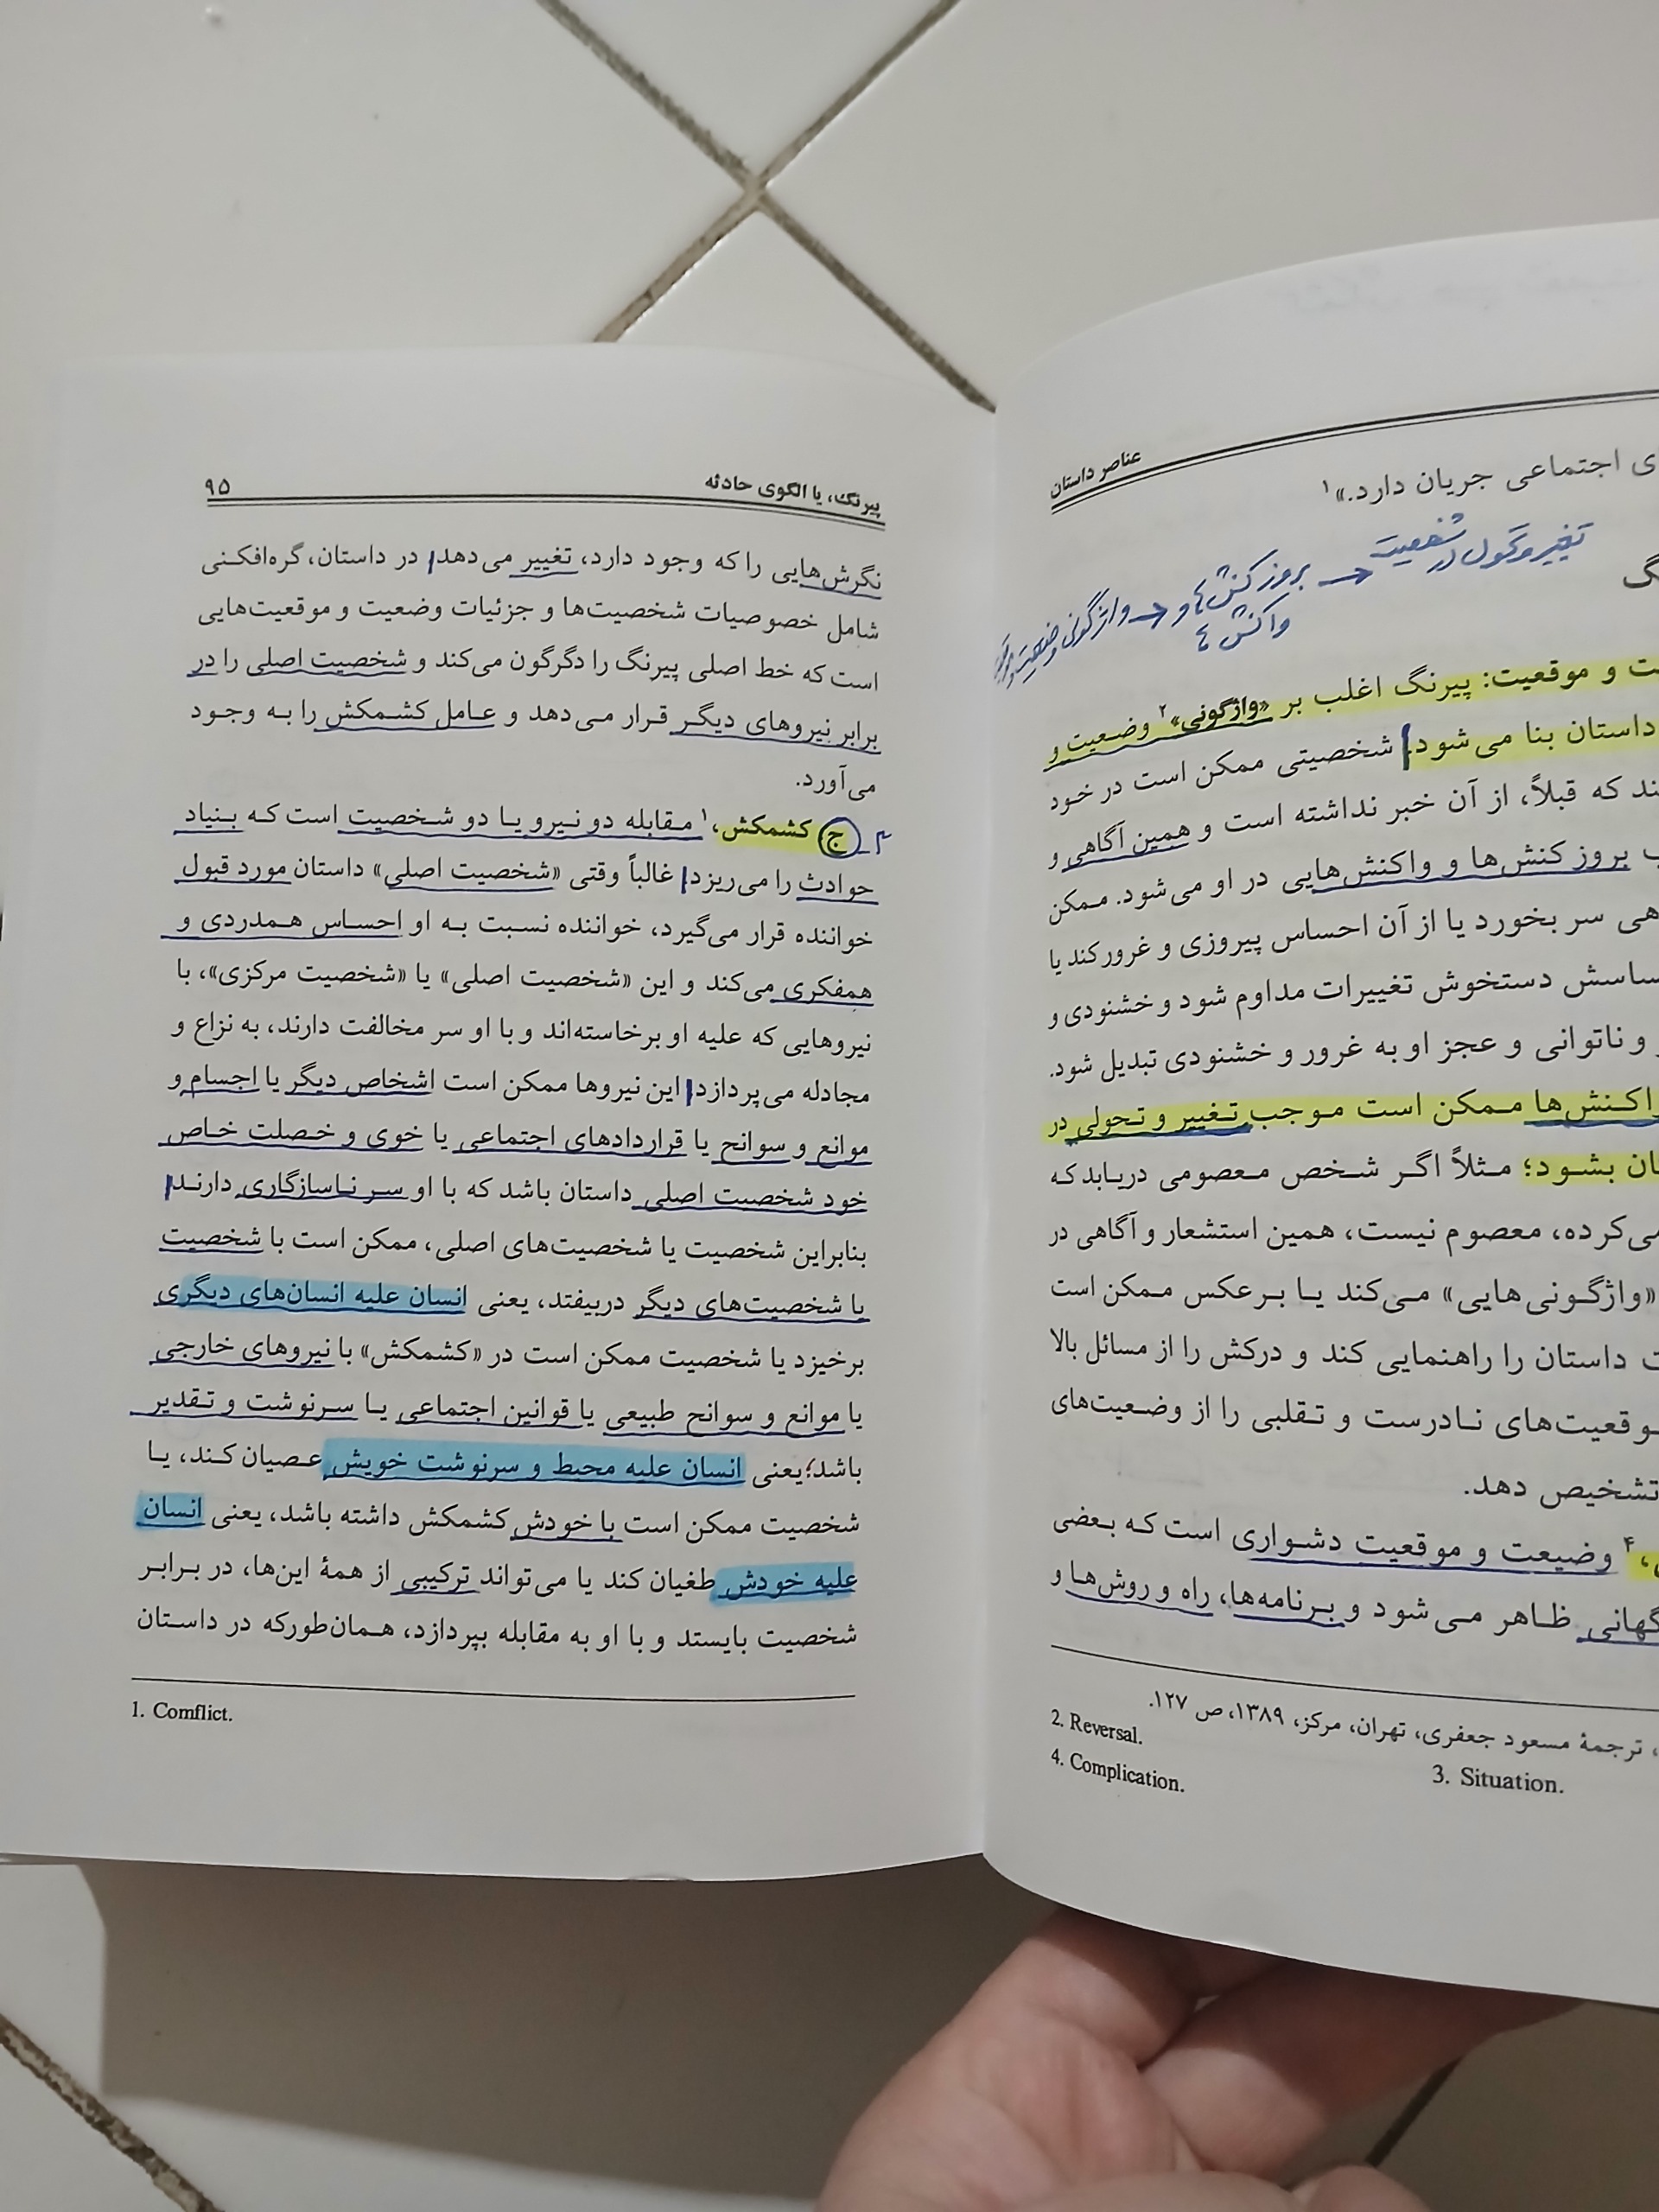 عناصر داستان
ی اجتماعی جریان دارد.»۱
تغییر و تحول در شخصیت ← بروز کنش‌ها و واکنش‌ها ← واژگونی وضعیت و
گ
ت و موقعیت: پیرنگ اغلب بر «واژگونی»۲ وضعیت و
داستان بنا می‌شود. شخصیتی ممکن است در خود
ند که قبلاً، از آن خبر نداشته است و همین آگاهی و
ب بروز کنش‌ها و واکنش‌هایی در او می‌شود. ممکن
هی سر بخورد یا از آن احساس پیروزی و غرور کند یا
ساسش دستخوش تغییرات مداوم شود و خشنودی و
و ناتوانی و عجز او به غرور و خشنودی تبدیل شود.
اکنش‌ها ممکن است موجب تغییر و تحولی در
ان بشود؛ مثلاً اگر شخص معصومی دریابد که
می‌کرده، معصوم نیست، همین استشعار و آگاهی در
«واژگونی‌هایی» می‌کند یا برعکس ممکن است
ت داستان را راهنمایی کند و درکش را از مسائل بالا
وقعیت‌های نادرست و تقلبی را از وضعیت‌های
تشخیص دهد.
،۴ وضیعت و موقعیت دشواری است که بعضی
گهانی ظاهر می‌شود و برنامه‌ها، راه و روش‌ها و
، ترجمهٔ مسعود جعفری، تهران، مرکز، ۱۳۸۹، ص ۱۲۷.
2. Reversal.
3. Situation.
4. Complication.
پیرنگ، یا الگوی حادثه ۹۵
نگرش‌هایی را که وجود دارد، تغییر می‌دهد در داستان، گره‌افکنی
شامل خصوصیات شخصیت‌ها و جزئیات وضعیت و موقعیت‌هایی
است که خط اصلی پیرنگ را دگرگون می‌کند و شخصیت اصلی را در
برابر نیروهای دیگر قرار می‌دهد و عامل کشمکش را به وجود
می‌آورد.
۳ ج کشمکش،۱ مقابله دو نیرو یا دو شخصیت است که بنیاد
حوادث را می‌ریزد غالباً وقتی «شخصیت اصلی» داستان مورد قبول
خواننده قرار می‌گیرد، خواننده نسبت به او احساس همدردی و
همفکری می‌کند و این «شخصیت اصلی» یا «شخصیت مرکزی»، با
نیروهایی که علیه او برخاسته‌اند و با او سر مخالفت دارند، به نزاع و
مجادله می‌پردازد این نیروها ممکن است اشخاص دیگر یا اجسام و
موانع و سوانح یا قراردادهای اجتماعی یا خوی و خصلت خاص
خود شخصیت اصلی داستان باشد که با او سر ناسازگاری دارند
بنابراین شخصیت یا شخصیت‌های اصلی، ممکن است با شخصیت
یا شخصیت‌های دیگر دربیفتد، یعنی انسان علیه انسان‌های دیگری
برخیزد یا شخصیت ممکن است در «کشمکش» با نیروهای خارجی
یا موانع و سوانح طبیعی یا قوانین اجتماعی یا سرنوشت و تقدیر
باشد؛ یعنی انسان علیه محیط و سرنوشت خویش عصیان کند، یا
شخصیت ممکن است با خودش کشمکش داشته باشد، یعنی انسان
علیه خودش طغیان کند یا می‌تواند ترکیبی از همهٔ این‌ها، در برابر
شخصیت بایستد و با او به مقابله بپردازد، همان‌طورکه در داستان
1. Comflict.